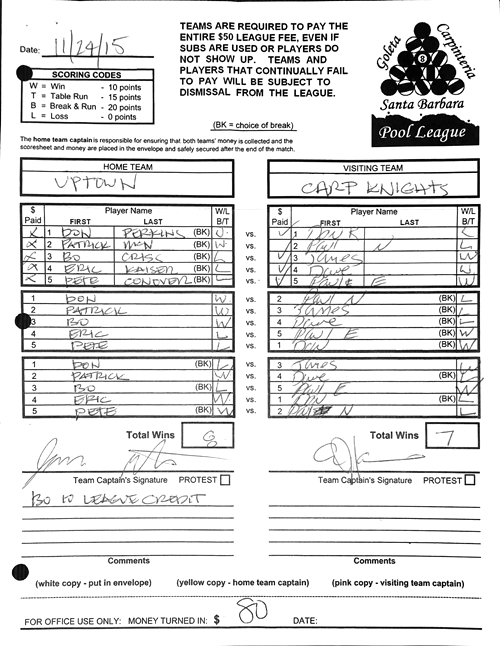 Date: 11/24/15
SCORING CODES
W = Win - 10 points
T = Table Run - 15 points
B = Break & Run - 20 points
L = Loss - 0 points
TEAMS ARE REQUIRED TO PAY THE
ENTIRE $50 LEAGUE FEE, EVEN IF
SUBS ARE USED OR PLAYERS DO
NOT SHOW UP. TEAMS AND
PLAYERS THAT CONTINUALLY FAIL
TO PAY WILL BE SUBJECT TO
DISMISSAL FROM THE LEAGUE.
(BK = choice of break)
Goleta
Carpinteria
8
Santa Barbara
Pool League
The home team captain is responsible for ensuring that both teams' money is collected and the
scoresheet and money are placed in the envelope and safely secured after the end of the match.
HOME TEAM VISITING TEAM
UPTOWN CARP KNIGHTS
$ Paid Player Name FIRST LAST W/L B/T $ Paid Player Name FIRST LAST W/L B/T
X 1 DON PERKINS (BK) vs. ✓ 1 L
X 2 PATRICK (BK) W vs. ✓ 2 Paul N L
X 3 BO CRISC (BK) L vs. ✓ 3 James W
X 4 ERIC KAISER (BK) L vs. ✓ 4 Dave W
X 5 PETE CONOVER (BK) L vs. ✓ 5 Paul E W
1 DON W vs. 2 Paul N (BK) L
2 PATRICK W vs. 3 James (BK) L
3 BO W vs. 4 Dave (BK) L
4 ERIC L vs. 5 Paul E (BK) W
5 PETE L vs. 1 (BK) W
1 DON (BK) L vs. 3 James W
2 PATRICK W vs. 4 Dave (BK) L
3 BO (BK) L vs. 5 Paul E W
4 ERIC W vs. 1 (BK) L
5 PETE (BK) W vs. 2 Paul N L
Total Wins 8 Total Wins 7
Team Captain's Signature PROTEST Team Captain's Signature PROTEST
BO 10 LEAGUE CREDIT
Comments Comments
(white copy - put in envelope) (yellow copy - home team captain) (pink copy - visiting team captain)
FOR OFFICE USE ONLY: MONEY TURNED IN: $ 80 DATE: